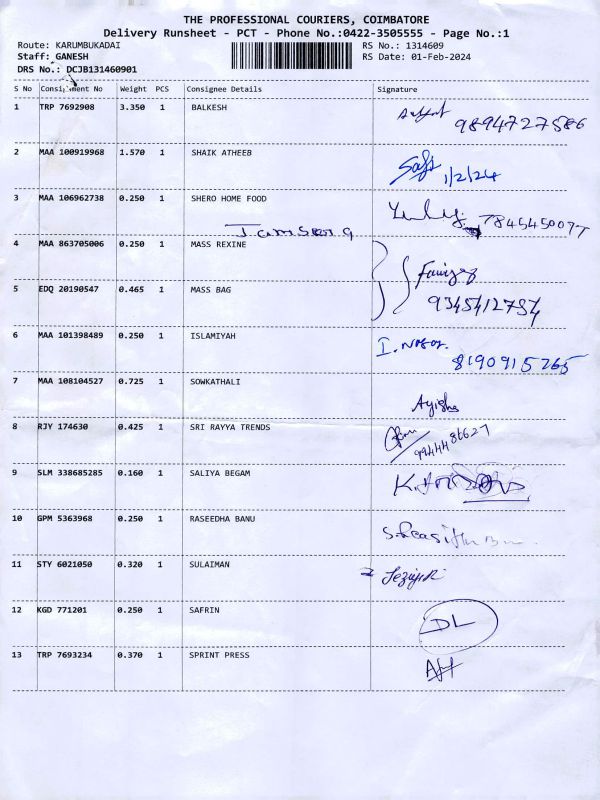 THE PROFESSIONAL COURIERS, COIMBATORE
Delivery Runsheet - PCT - Phone No.:0422-3505555 - Page No.:1
Route: KARUMBUKADAI RS No.: 1314609
Staff: GANESH RS Date: 01-Feb-2024
DRS No.: DCJB131460901
S No Consignment No Weight PCS Consignee Details Signature
1 TRP 7692908 3.350 1 BALKESH
9894727586
2 MAA 100919968 1.570 1 SHAIK ATHEEB
1/2/24
3 MAA 106962738 0.250 1 SHERO HOME FOOD
7845450077
4 MAA 863705006 0.250 1 MASS REXINE
5 EDQ 20190547 0.465 1 MASS BAG
9345412754
6 MAA 101398489 0.250 1 ISLAMIYAH
8190915265
7 MAA 108104527 0.725 1 SOWKATHALI
Ayisha
8 RJY 174630 0.425 1 SRI RAYYA TRENDS
9944486627
9 SLM 338685285 0.160 1 SALIYA BEGAM
10 GPM 5363968 0.250 1 RASEEDHA BANU
11 STY 6021050 0.320 1 SULAIMAN
12 KGD 771201 0.250 1 SAFRIN
DL
13 TRP 7693234 0.370 1 SPRINT PRESS